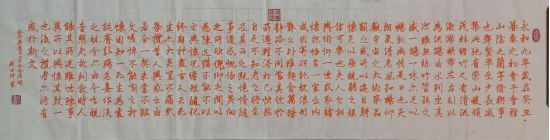 永和九年歲在癸丑
暮春之初會于會稽
山陰之蘭亭脩禊事
也羣賢畢至少長咸
集此地有崇山峻領
茂林脩竹又有清流
激湍暎帶左右引以
為流觴曲水列坐其
次雖無絲竹管弦之
盛一觴一詠亦足以
暢敘幽情是日也天
朗氣清惠風和暢仰
觀宇宙之大俯察品
類之盛所以遊目騁
懷足以極視聽之娛
信可樂也夫人之相
與俯仰一世或取諸
懷抱悟言一室之內
或因寄所託放浪形
骸之外雖趣舍萬殊
靜躁不同當其欣於
所遇暫得於己快然
自足不知老之將至
及其所之既惓情隨
事遷感慨係之矣向
之所欣俛仰之間以
為陳迹猶不能不以
之興懷況脩短隨化
終期於盡古人云死
生亦大矣豈不痛哉
每攬昔人興感之由
若合一契未嘗不臨
文嗟悼不能喻之於
懷固知一死生為虛
誕齊彭殤為妄作後
之視今亦由今之視
昔悲夫故列敘時人
錄其所述雖世殊事
異所以興懷其致一
也後之攬者亦將有
感於斯文